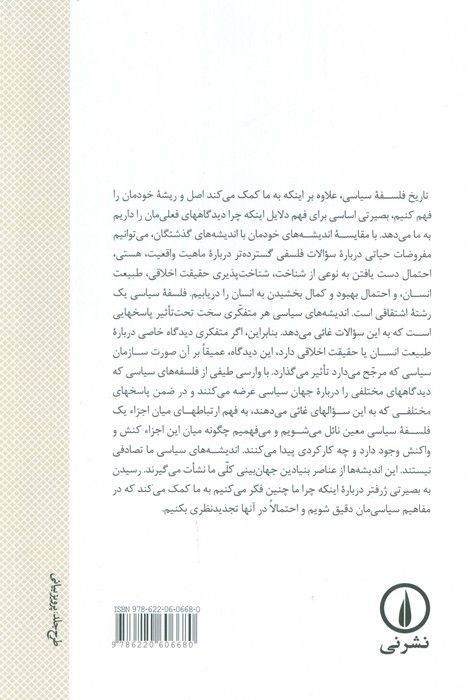 تاریخ فلسفهٔ سیاسی، علاوه بر اینکه به ما کمک می‌کند اصل و ریشهٔ خودمان را
فهم کنیم، بصیرتی اساسی برای فهم دلایل اینکه چرا دیدگاههای فعلی‌مان را داریم
به ما می‌دهد. با مقایسهٔ اندیشه‌های خودمان با اندیشه‌های گذشتگان، می‌توانیم
مفروضات حیاتی دربارهٔ سؤالات فلسفی گسترده‌تر دربارهٔ ماهیت واقعیت، هستی،
احتمال دست یافتن به نوعی از شناخت، شناخت‌پذیری حقیقت اخلاقی، طبیعت
انسان، و احتمال بهبود و کمال بخشیدن به انسان را دریابیم. فلسفهٔ سیاسی یک
رشتهٔ اشتقاقی است. اندیشه‌های سیاسی هر متفکّری سخت تحت‌تأثیر پاسخهایی
است که به این سؤالات غائی می‌دهد. بنابراین، اگر متفکری دیدگاه خاصی دربارهٔ
طبیعت انسان یا حقیقت اخلاقی دارد، این دیدگاه، عمیقاً بر آن صورت سازمان
سیاسی که مرجّح می‌دارد تأثیر می‌گذارد. با وارسی طیفی از فلسفه‌های سیاسی که
دیدگاههای مختلفی را دربارهٔ جهان سیاسی عرضه می‌کنند و در ضمن پاسخهای
مختلفـی که به این سـؤالهای غائی می‌دهند، به فهم ارتباطهـای میان اجزاء یک
فلسفهٔ سیاسی معین نائل می‌شویم و می‌فهمیم چگونه میان این اجزاء کنش و
واکنش وجود دارد و چه کارکردی پیدا می‌کنند. اندیشه‌های سیاسی ما تصادفی
نیستند. این اندیشه‌ها از عناصر بنیادین جهان‌بینی کلّی ما نشأت می‌گیرند. رسیدن
به بصیرتی ژرفتر دربارهٔ اینکه چرا ما چنین فکر می‌کنیم به ما کمک می‌کند که در
مفاهیم سیاسی‌مان دقیق شویم و احتمالاً در آنها تجدیدنظری بکنیم.
طرح جلد: پرویز بیانی
ISBN 978-622-06-0668-0
9 786220 606680
نشرنی